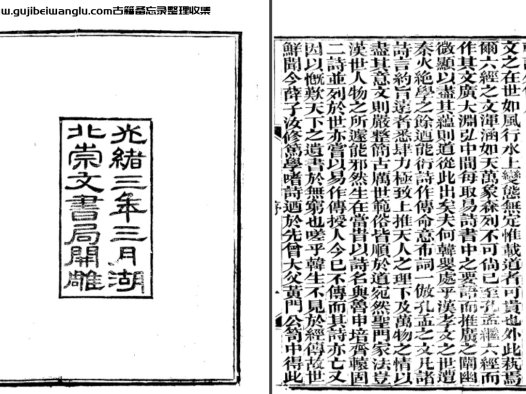 www.gujibeiwanglu.com古籍备忘录整理收集
光緒三年三月湖
北崇文書局開雕
文之在世如風行水上變態無定惟載道者可貴也外此執焉
爾六經之文渾涵如天萬象森列不可尚已至孔孟繼六經而
作其文廣大淵弘中間每取易詩書中之要語而推廣之闡幽
微顯以盡其蘊則道從此出矣夫何韓嬰處乎漢孝文之世遭
秦火絕學之餘迺能衍詩作傳命意布詞一倣孔孟之文凡諸
詩言約旨遠者悉肆力極致上推天人之理下及萬物之情以
盡其意文則嚴整簡古厲世範俗皆順於道宛然聖門家法豈
漢世人物之所遽能邪然生在當時以詩名與魯申培齊轅固
二詩並列於世亦嘗以易作傳授人今已不傳而其詩亦亡又
因以慨歎天下之遺書於無窮也嗟乎韓生不見於經傳故世
鮮聞今薛子汝修篤學嗜詩迺於先曾大父黃門公笥中得此